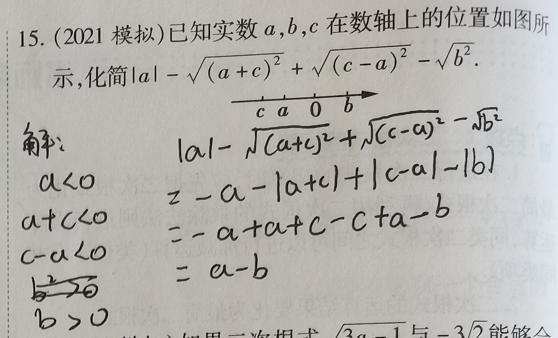 15. (2021 模拟)已知实数 a,b,c 在数轴上的位置如图所
示,化简|a| - √(a+c)² + √(c-a)² - √b².
c a 0 b
解:
|a| - √(a+c)² + √(c-a)² - √b²
a<0
= -a - |a+c| + |c-a| - |b|
a+c<0
= -a+a+c-c+a-b
c-a<0
= a-b
b²>0
b>0
如果二次根式 √3a-1 与 -3√2 能够合